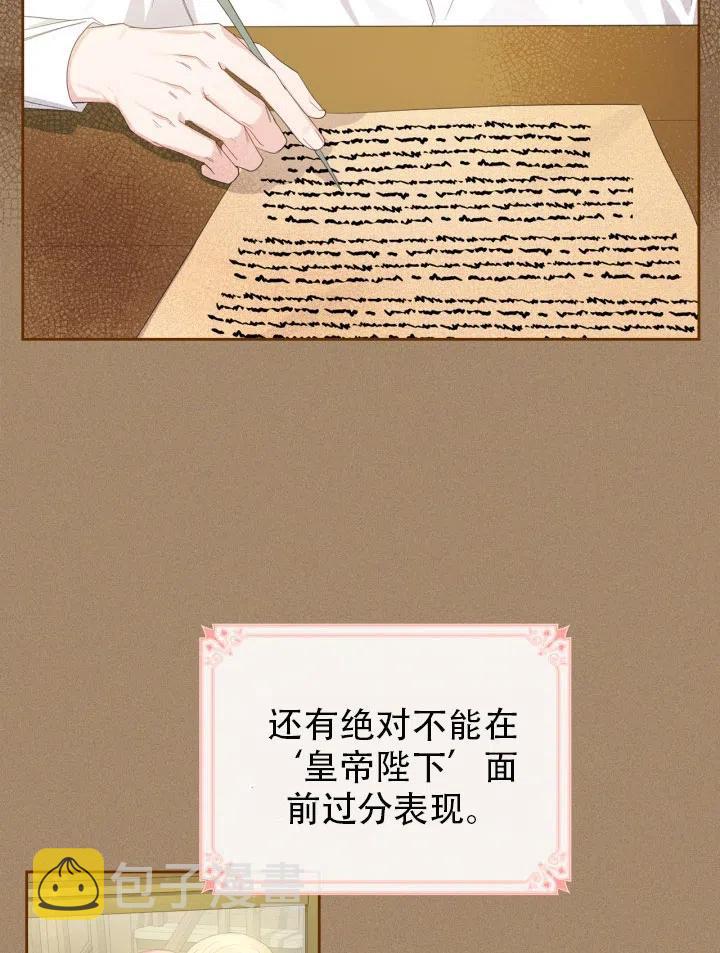 还有绝对不能在
‘皇帝陛下’面
前过分表现。
包子漫畫